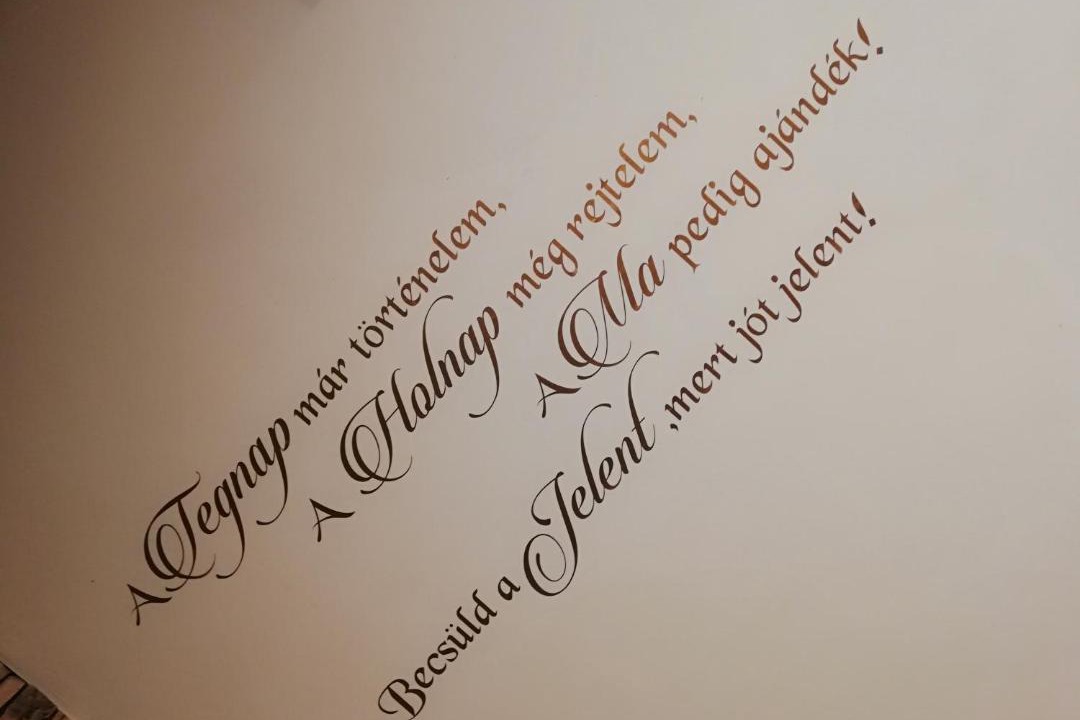 A Tegnap már történelem,
A Holnap még rejtelem,
A Ma pedig ajándék!
Becsüld a Jelent ,mert jót jelent!